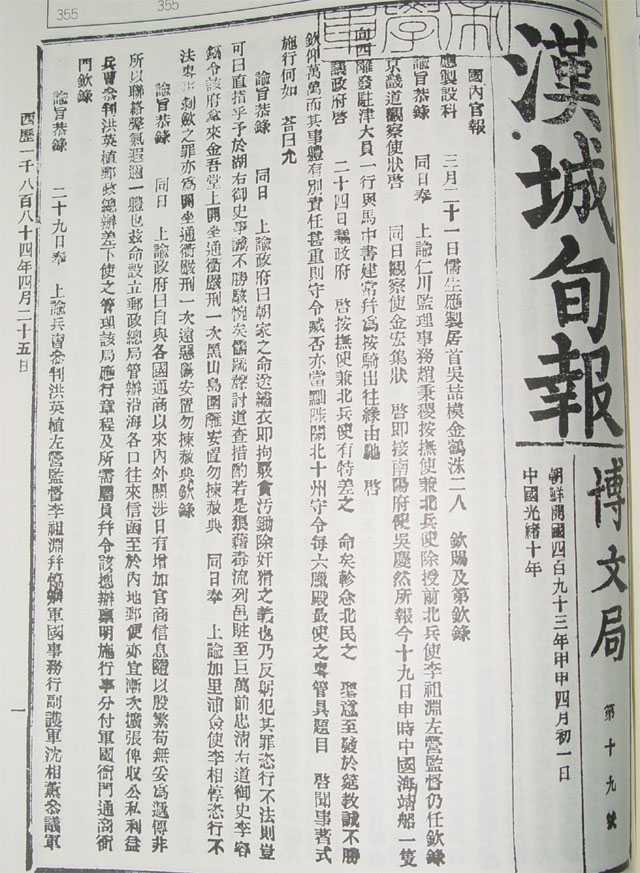 355
355
漢城旬報
博文局 第十九號
朝鮮開國四百九十三年甲申四月初一日
中國光緒十年
國內官報
應製設科 三月二十一日儒生應製居首吳喆模金鶴洙二人 欽賜及第欽錄
諭旨恭錄 同日奉 上諭仁川監理事務趙秉稷按撫使兼北兵使除授前北兵使李祖淵左營監督仍任欽錄
京畿道觀察使狀啓 同日觀察使金宏集狀 啓卽接南陽府使吳慶然所報今十九日申時中國海靖船一隻
向西離發駐津大員一行與馬中書建常幷爲按騎出往緣由馳 啓
議政府啓 二十四日議政府 啓按撫使兼北兵使有特差之 命矣軫念北民之 聖意至發於筵教誠不勝
欽仰萬萬而其事體有別責任甚重則守令臧否亦當黜陟關北十州守令每六臘殿最使之專管具題目 啓聞事著式
施行何如 答曰允
諭旨恭錄 同日 上諭政府曰朝家之命送繡衣卽拘駁貪汚鋤除奸猾之義也乃反躬犯其罪恣行不法則豈
可曰直指乎予於湖右御史事誠不勝駭惋矣儒疏臚討道查措酌若是狼藉毒流列邑賍至巨萬前忠淸右道御史李容
鎬令該府拿來金吾堂上開坐通衢嚴刑一次黑山島圍籬安置勿揀赦典 同日奉 上諭加里浦僉使李相惇恣行不
法專事剝斂之罪亦爲開坐通衢嚴刑一次遠惡島安置勿揀赦典欽錄
諭旨恭錄 同日 上諭政府曰自與各國通商以來內外關涉日有增加官商信息隨以殷繁苟無妥爲遞傳非
所以聯絡聲氣遐邇一體也玆命設立郵政總局管辦沿海各口往來信函至於內地郵便亦宜漸次擴張俾收公私利益
兵曹參判洪英植郵政總辦差下使之管理該局應行章程及所需屬員幷令該總辦稟明施行事分付軍國衙門通商衙
門欽錄
諭旨恭錄 二十九日奉 上諭兵曹參判洪英植左營監督李祖淵幷協辦軍國事務行副護軍沈相薰參議軍
西歷一千八百八十四年四月二十五日
一